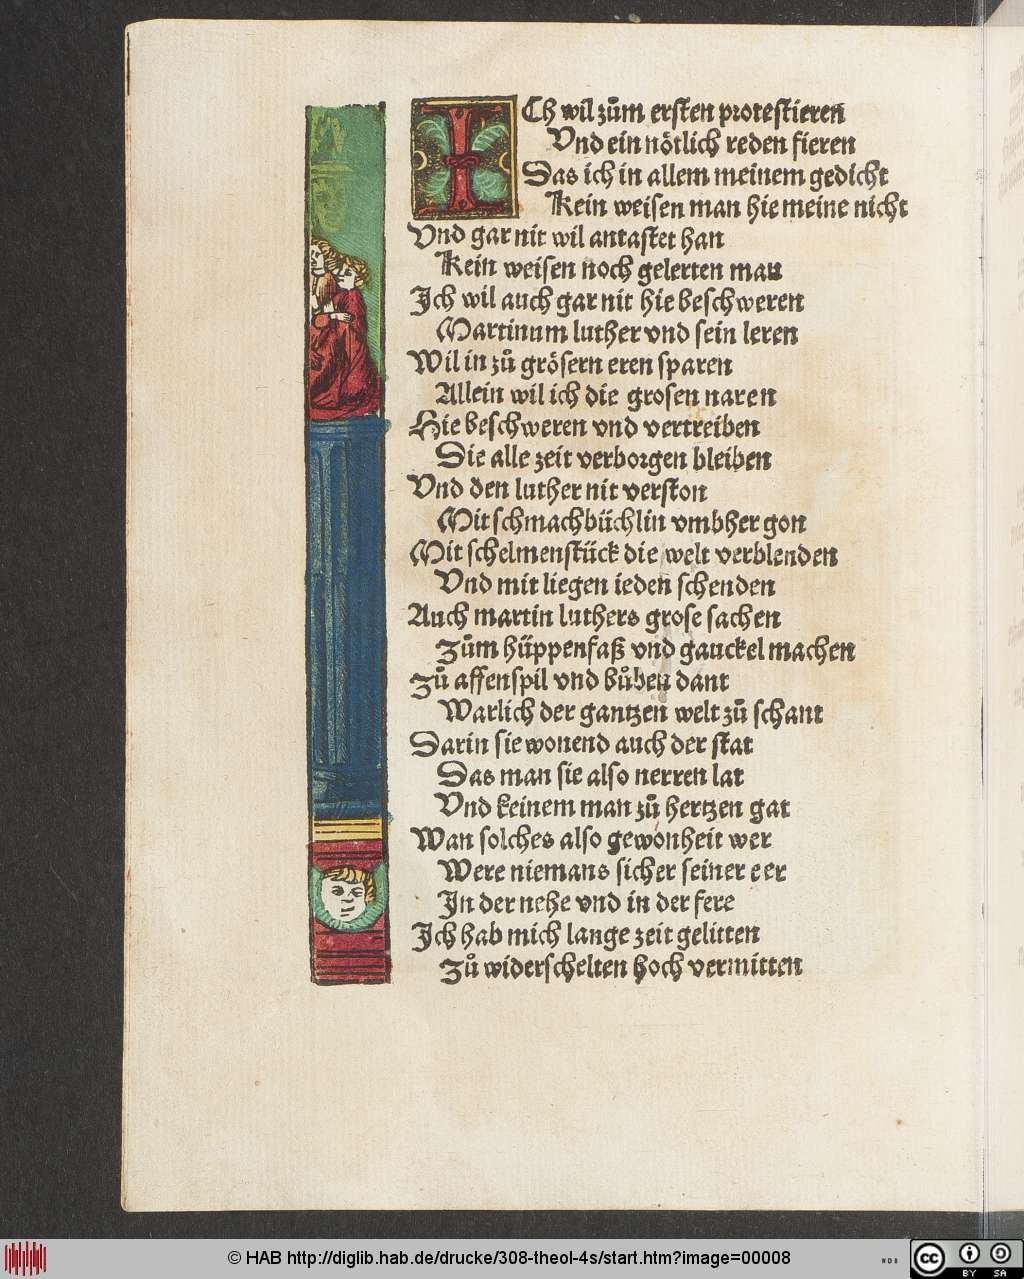 ICh wil zům ersten protestieren
Vnd ein nötlich reden fieren
Das ich in allem meinem gedicht
Kein weisen man hie meine nicht
Vnd gar nit wil antastet han
Kein weisen noch gelerten man
Ich wil auch gar nit hie beschweren
Martinum luther vnd sein leren
Wil in zů grösern eren sparen
Allein wil ich die grosen naren
Hie beschweren vnd vertreiben
Die alle zeit verborgen bleiben
Vnd den luther nit verston
Mit schmachbüchlin vmbher gon
Mit schelmenstück die welt verblenden
Vnd mit liegen ieden schenden
Auch martin luthers grose sachen
Zům hüppenfaß vnd gauckel machen
Zů affenspil vnd bůben dant
Warlich der gantzen welt zů schant
Darin sie wonend auch der stat
Das man sie also nerren lat
Vnd keinem man zů hertzen gat
Wan solches also gewonheit wer
Were niemans sicher seiner eer
In der nehe vnd in der fere
Ich hab mich lange zeit gelitten
Zů widerschelten hoch vermitten
© HAB http://diglib.hab.de/drucke/308-theol-4s/start.htm?image=00008
WDB
cc BY SA